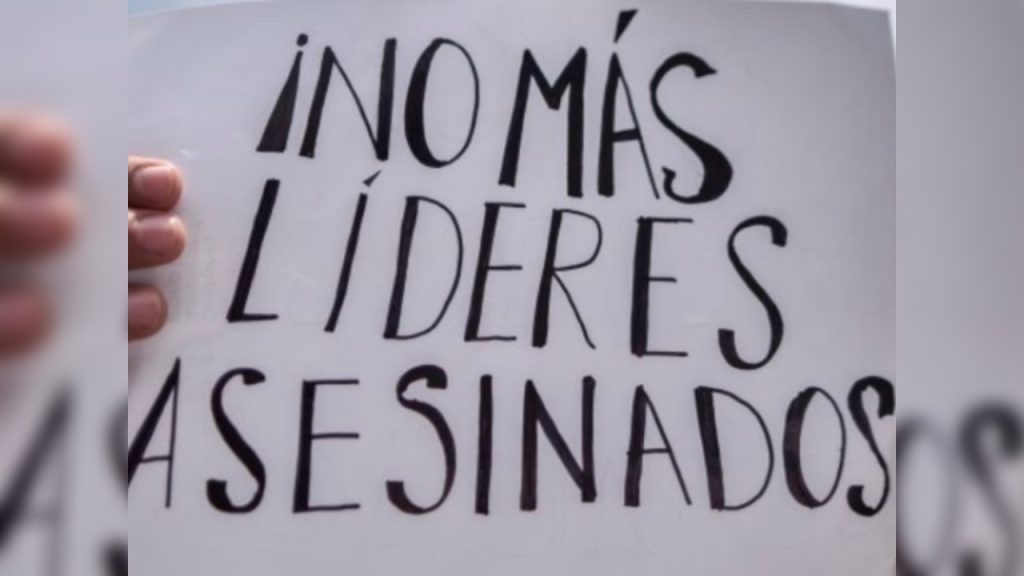 ¡NO MÁS
LÍDERES
ASESINADOS